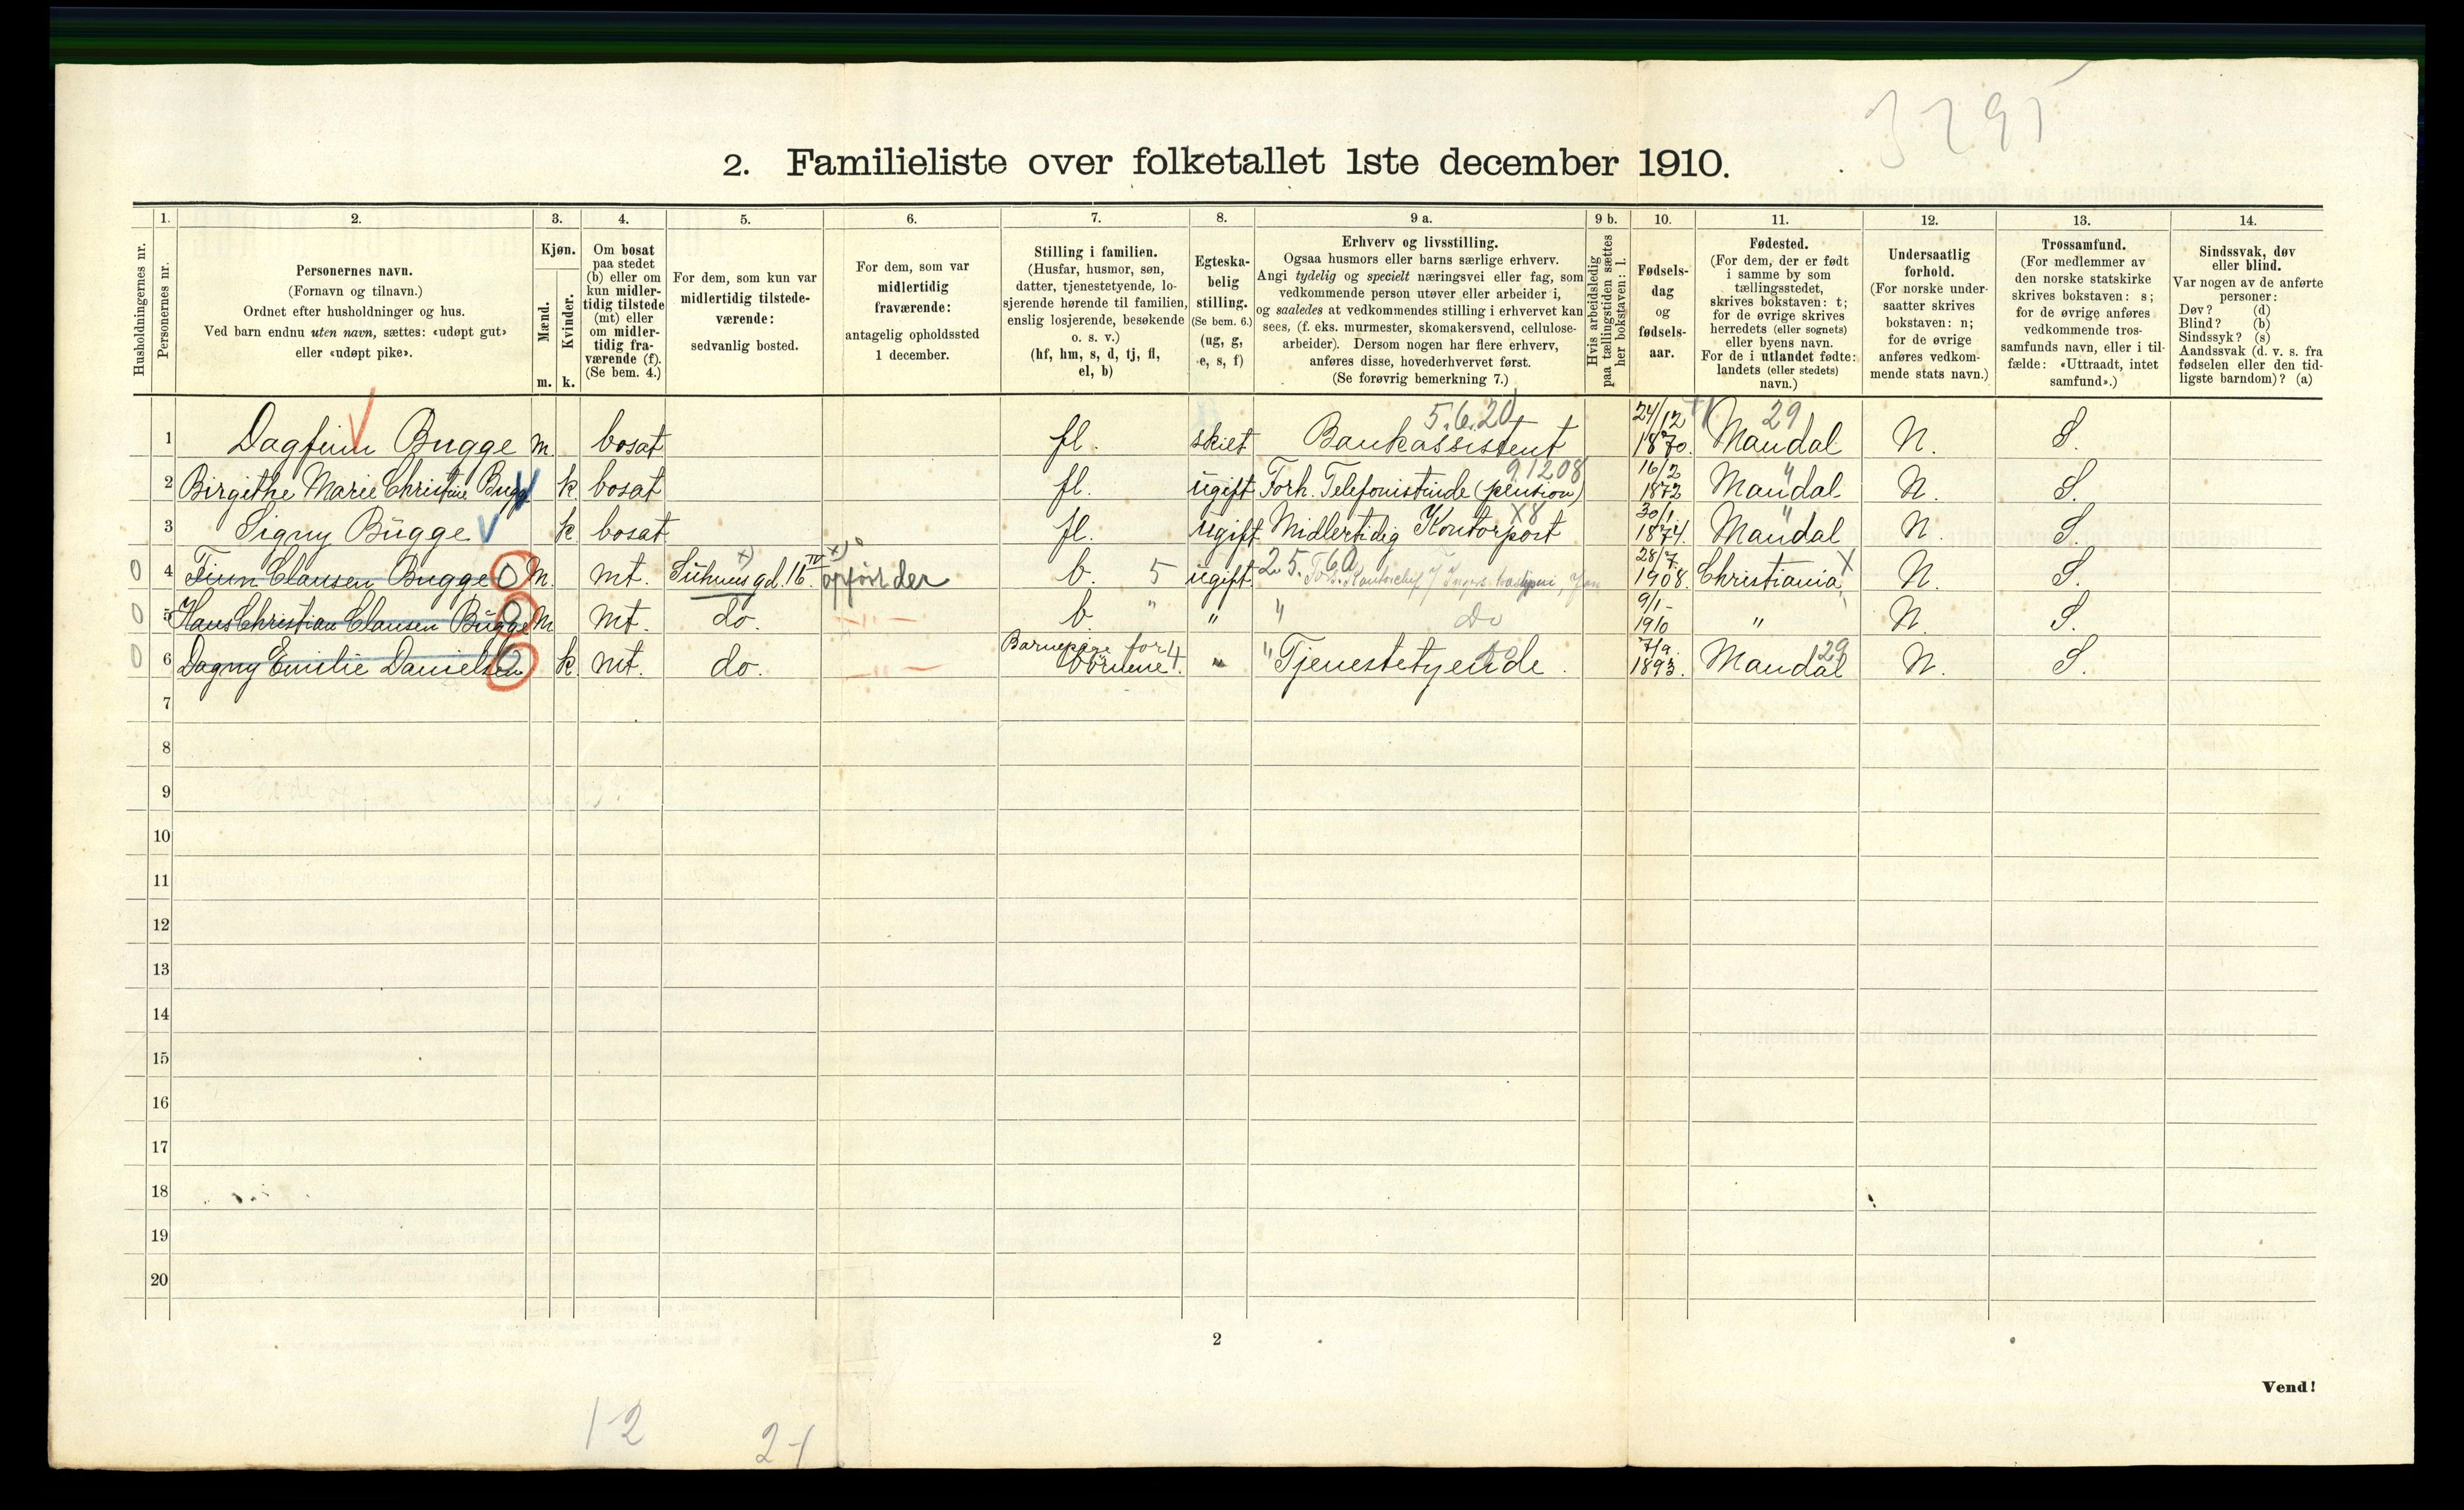 3295
2. Familieliste over folketallet 1ste december 1910.
Husholdningernes nr.
1. Personernes nr.
2. Personernes navn.
(Fornavn og tilnavn.)
Ordnet efter husholdninger og hus.
Ved barn endnu uten navn, sættes: «udøpt gut»
eller «udøpt pike».
3. Kjøn.
Mænd. m.
Kvinder. k.
4. Om bosat
paa stedet
(b) eller om
kun midler-
tidig tilstede
(mt) eller
om midler-
tidig fra-
værende (f).
(Se bem. 4.)
5. For dem, som kun var
midlertidig tilstede-
værende:
sedvanlig bosted.
6. For dem, som var
midlertidig
fraværende:
antagelig opholdssted
1 december.
7. Stilling i familien.
(Husfar, husmor, søn,
datter, tjenestetyende, lo-
sjerende hørende til familien,
enslig losjerende, besøkende
o. s. v.)
(hf, hm, s, d, tj, fl,
el, b)
8. Egteska-
belig
stilling.
(Se bem. 6.)
(ug, g,
e, s, f)
9 a. Erhverv og livsstilling.
Ogsaa husmors eller barns særlige erhverv.
Angi tydelig og specielt næringsvei eller fag, som
vedkommende person utøver eller arbeider i,
og saaledes at vedkommendes stilling i erhvervet kan
sees, (f. eks. murmester, skomakersvend, cellulose-
arbeider). Dersom nogen har flere erhverv,
anføres disse, hovederhvervet først.
(Se forøvrig bemerkning 7.)
9 b. Hvis arbeidsledig
paa tællingstiden sættes
her bokstaven: l.
10. Fødsels-
dag
og
fødsels-
aar.
11. Fødested.
(For dem, der er født
i samme by som
tællingsstedet,
skrives bokstaven: t;
for de øvrige skrives
herredets (eller sognets)
eller byens navn.
For de i utlandet fødte:
landets (eller stedets)
navn.)
12. Undersaatlig
forhold.
(For norske under-
saatter skrives
bokstaven: n;
for de øvrige
anføres vedkom-
mende stats navn.)
13. Trossamfund.
(For medlemmer av
den norske statskirke
skrives bokstaven: s;
for de øvrige anføres
vedkommende tros-
samfunds navn, eller i til-
fælde: «Uttraadt, intet
samfund».)
14. Sindssvak, døv
eller blind.
Var nogen av de anførte
personer:
Døv? (d)
Blind? (b)
Sindssyk? (s)
Aandssvak (d. v. s. fra
fødselen eller den tid-
ligste barndom)? (a)
5.6.20 29
1 Dagfinn Bugge m. bosat fl. skilt Bankassistent 24/12 1870. Mandal N. S.
91208 "
2 Birgithe Marie Christine Bugge k. bosat fl. ugift Forh. Telefonistinde (pension) 16/2 1872 Mandal N. S.
X8 "
3 Signy Bugge k bosat fl. ugift Midlertidig Kontorpost 30/1 1874. Mandal N. S.
0 4 Finn Clausen Bugge 0 m. mt. Suhmsgd. 16 IV x) opført der b. 5 ugift 25.60 28/7. 1908. Christiania X N. S.
0 5 Hans Christian Clausen Bugge 0 m mt. do. — " — b. " " " Do 9/1- 1910 " N. S.
0 6 Dagny Emilie Danielsen 0 k. mt. do. — " — Barnepige for børnene. 4 " " Tjenestetyende. 7/9. 1893. Mandal 29 N. S.
7
8
9
10
11
12
13
14
15
16
17
18
19
20
2
Vend!
1-2
2-1